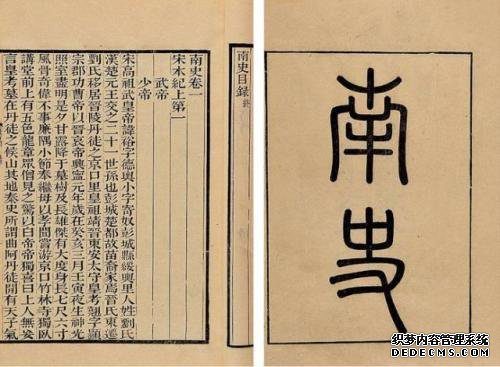 南史
南史目錄 終
南史卷一
宋本紀上第一
武帝
少帝
宋高祖武皇帝諱裕字德輿小字寄奴彭城縣綏輿里人姓劉氏
漢楚元王交之二十一世孫也彭城楚都故苗裔家焉晉氏東遷
劉氏移居晉陵丹徒之京口里皇祖靖晉東安太守皇考翹字顯
宗郡功曹帝以晉哀帝興寧元年歲在癸亥三月壬寅夜生神光
照室盡明是夕甘露降于墓樹及長雄傑有大度身長七尺六寸
風骨奇偉不事廉隅小節奉繼母以孝聞嘗游京口竹林寺獨臥
講堂前上有五色龍章衆僧見之驚以白帝帝獨喜曰上人無妄
言皇考墓在丹徒之候山其地秦史所謂曲阿丹徒閒有天子氣
织梦内容管理系统
DEDECMS.COM